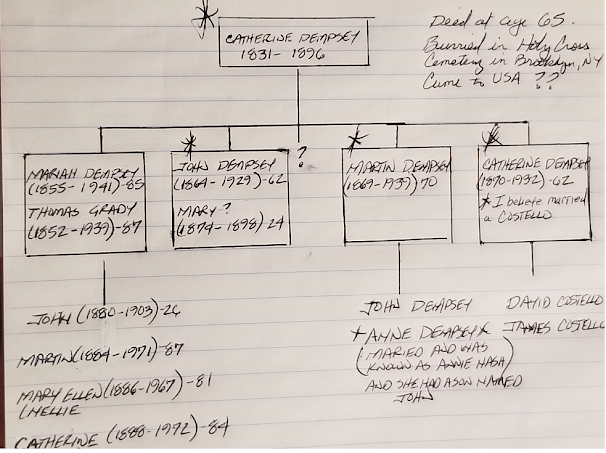 CATHERINE DEMPSEY
1831- 1896
Died at age 65.
Burried in Holy Cross
Cemetery in Brooklyn, NY
Came to USA ??
MARIAH DEMPSEY
(1855-1941)-85
THOMAS GRADY
(1852-1939)-87
JOHN DEMPSEY
(1864-1929)-62
MARY ?
(1874-1898) 24
?
MARTIN DEMPSEY
(1869-1939) 70
CATHERINE DEMPSEY
(1870-1932)-62
* I believe married
a COSTELLO
JOHN (1880-1903)-26
MARTIN (1884-1971)-87
MARY ELLEN (1886-1967)-81
(NELLIE
CATHERINE (1888-1972)-84
JOHN DEMPSEY
+ ANNE DEMPSEY X
(MARIED AND WAS
KNOWN AS ANNIE NASH)
AND SHE HAD A SON NAMED
JOHN
DAVID COSTELLO
JAMES COSTELLO